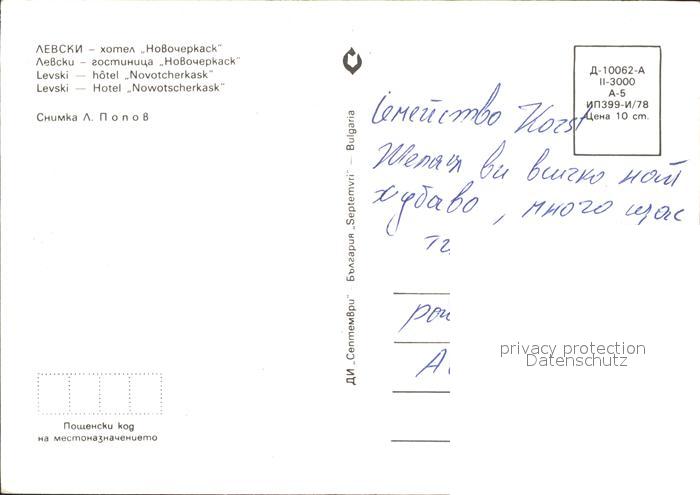 ЛЕВСКИ – хотел „Новочеркаск"
Левски – гостиница „Новочеркаск"
Levski — hôtel „Novotcherkask"
Levski — Hotel „Nowotscherkask"
Снимка Л. Попов
ДИ „Септември" – България „Septemvri" – Bulgaria
Д-10062-А
II-3000
А-5
ИП399-И/78
Цена 10 ст.
Семейство Horst
Желая ви всичко най
хубаво, много щас
privacy protection
Datenschutz
Пощенски код
на местоназначението